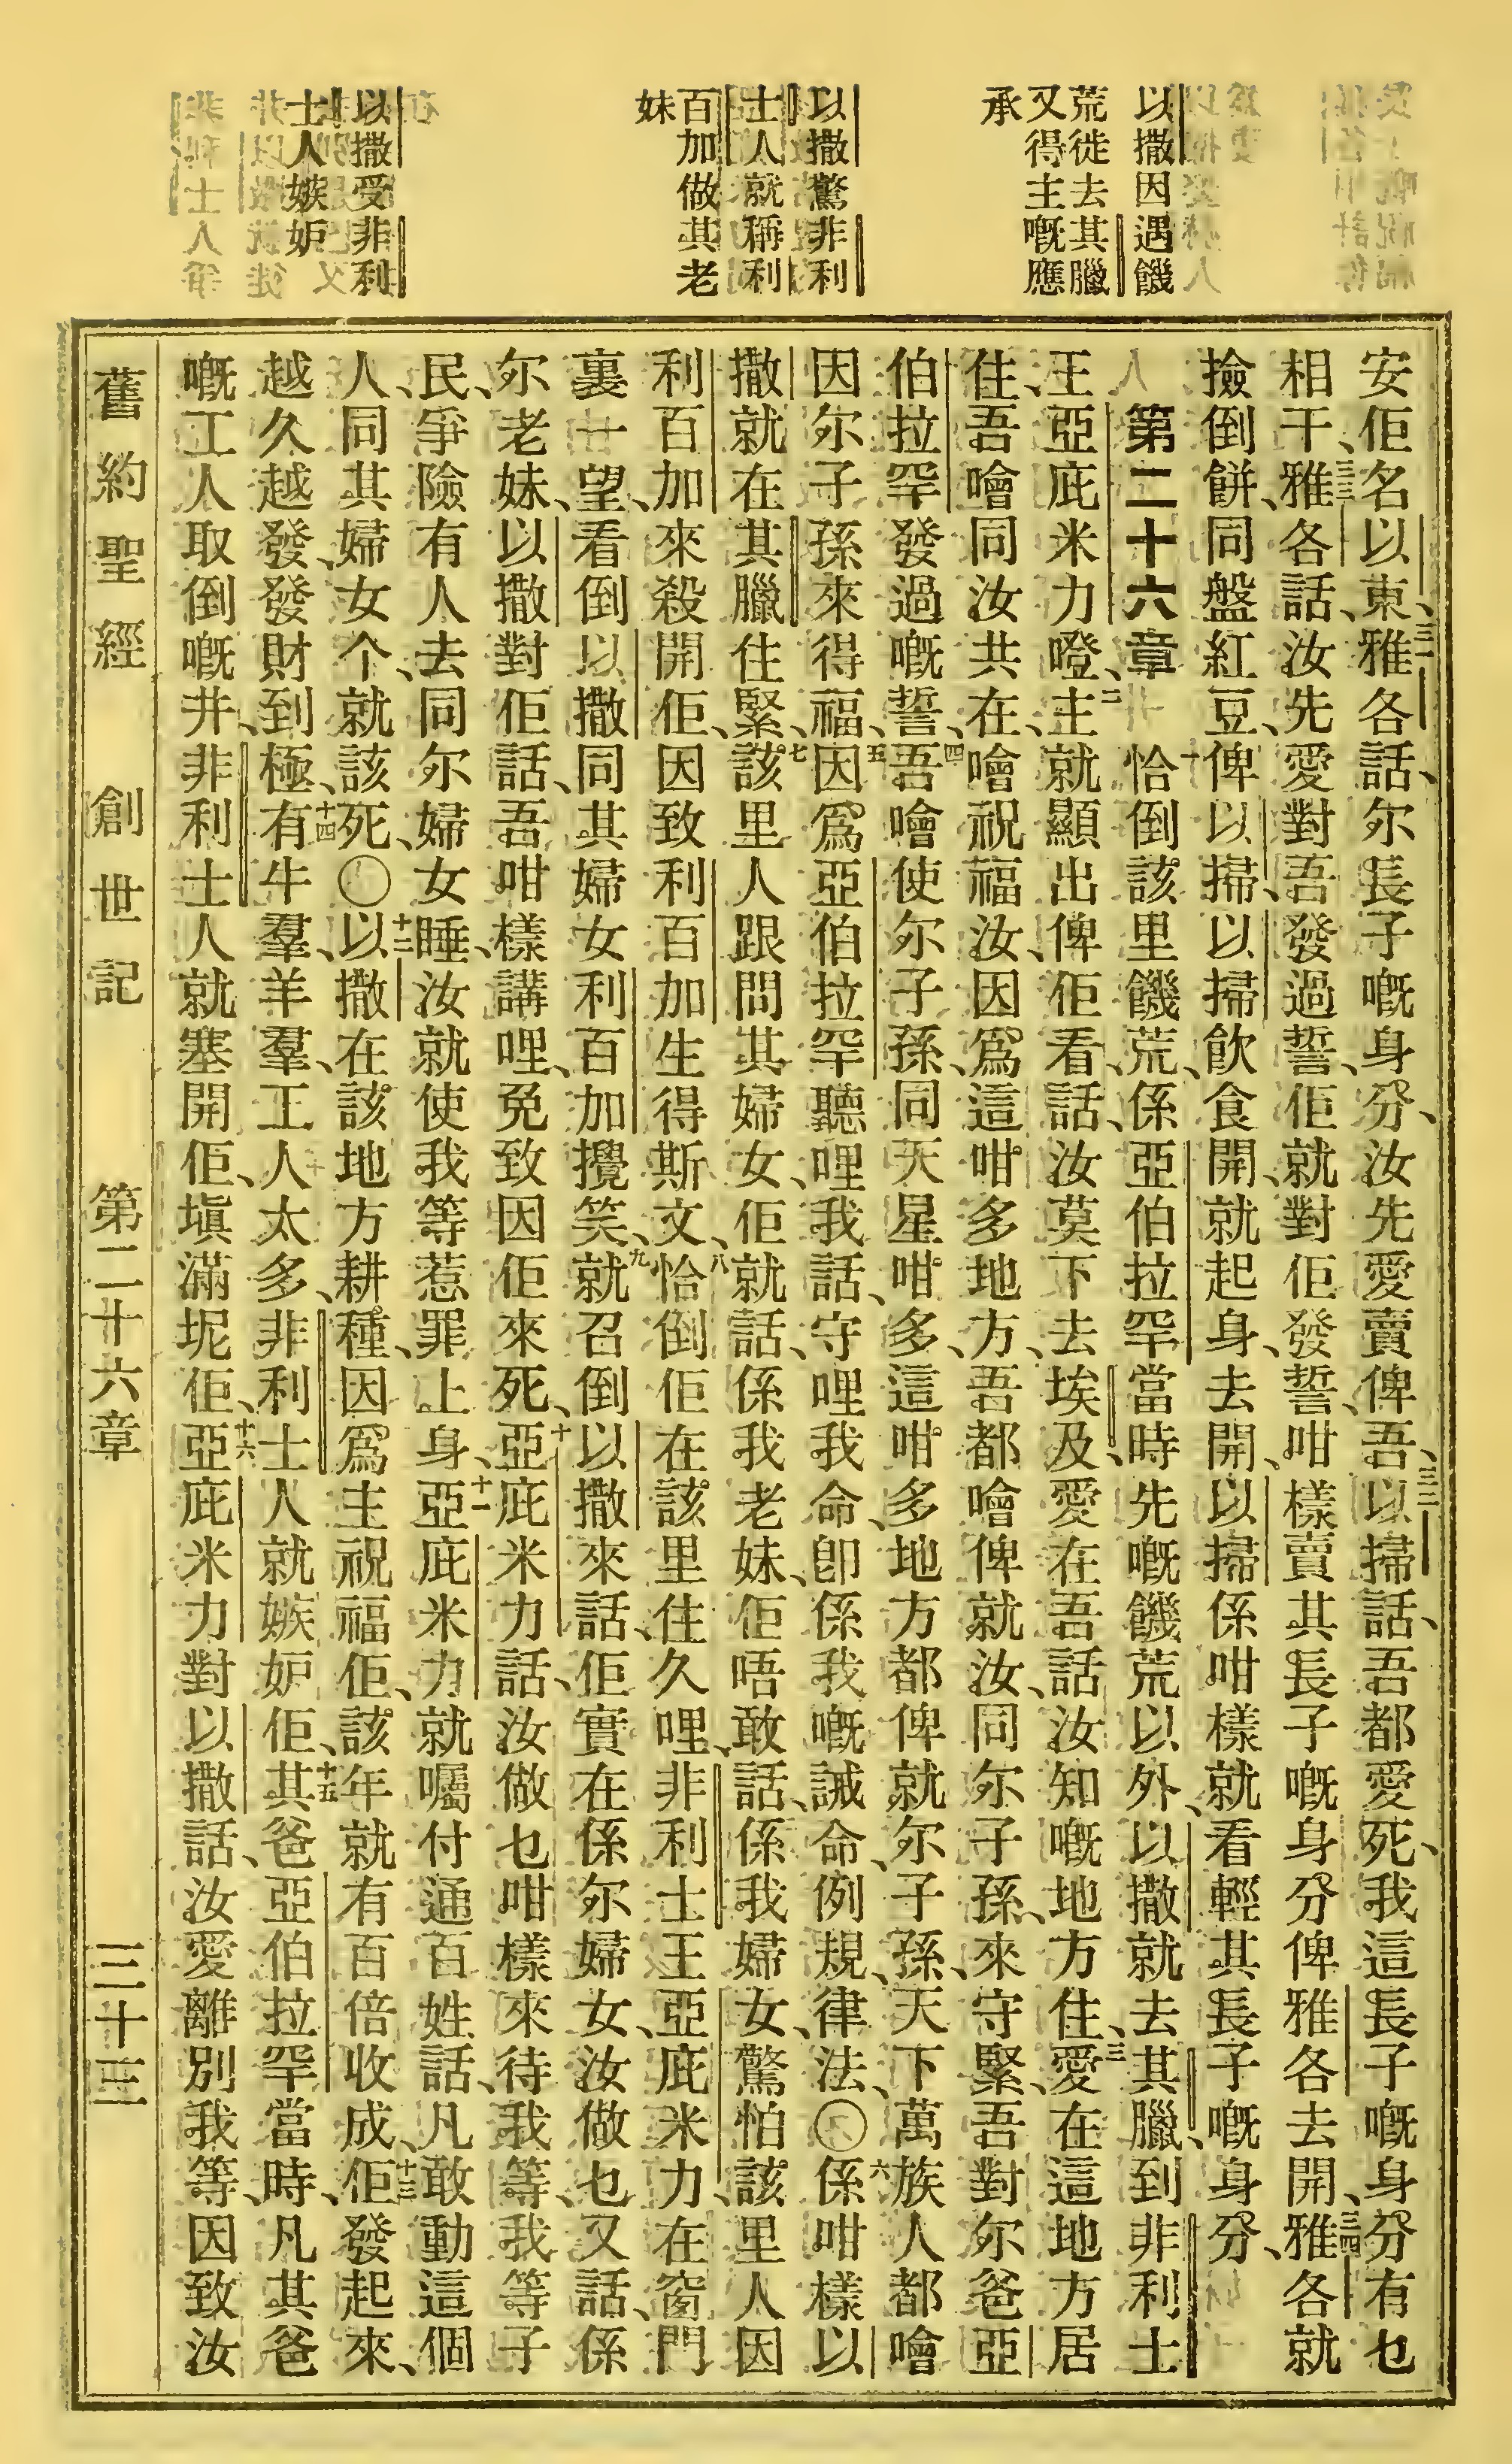 以撒因遇饑
荒徙去其臘
又得主嘅應
承
以撒驚非利
士人就稱利
百加做其老
妹
以撒受非利
士人嫉妒
安佢名以東、三一雅各話、尔長子嘅身分、汝先愛賣俾吾、三二以掃話、吾都愛死、我這長子嘅身分有乜
相干、三三雅各話、汝先愛對吾發過誓、佢就對佢發誓、咁樣賣其長子嘅身分俾雅各去開、三四雅各就
撿倒餅、同盤紅豆、俾以掃、以掃飲食開、就起身、去開、以掃係咁樣就看輕其長子嘅身分、
第二十六章　一恰倒該里饑荒、係亞伯拉罕當時先嘅饑荒以外、以撒就去其臘、到非利士
王亞庇米力噔、二主就顯出俾佢看、話、汝莫下去埃及、愛在吾話汝知嘅地方住、三愛在這地方居
住、吾噲同汝共在、噲祝福汝、因爲這咁多地方、吾都噲俾就汝、同尔子孫、來守緊吾對尔爸亞
伯拉罕發過嘅誓、四吾噲使尔子孫、同天星咁多、這咁多地方都俾就尔子孫、天下萬族人都噲
因尔子孫來得福、五因爲亞伯拉罕聽哩我話、守哩我命、卽係我嘅誡命、例規、律法、〇六係咁樣以
撒就在其臘住緊、七該里人跟問其婦女、佢就話、係我老妹、佢唔敢話、係我婦女、驚怕該里人因
利百加來殺開佢、因致利百加生得斯文、八恰倒佢在該里住久哩、非利士王亞庇米力、在窗門
裏一望、看倒以撒同其婦女利百加攪笑、九就召倒以撒來話、佢實在係尔婦女、汝做乜又話、係
尔老妹、以撒對佢話、吾咁樣講哩、免致因佢來死、十亞庇米力話、汝做乜咁樣來待我等、我等子
民、爭險有人去同尔婦女睡、汝就使我等惹罪上身、十一亞庇米力就囑付通百姓話、凡敢動這個
人、同其婦女个、就該死、〇十二以撒在該地方耕種、因爲主祝福佢、該年就有百倍收成、十三佢發起來、
越久越發、發財到極、十四有牛羣、羊羣、工人太多、非利士人就嫉妒佢、十五其爸亞伯拉罕當時、凡其爸
嘅工人取倒嘅井、非利士人就塞開佢、塡滿坭佢、十六亞庇米力對以撒話、汝愛離別我等、因致汝
舊約聖經　創世記　第二十六章　三十三